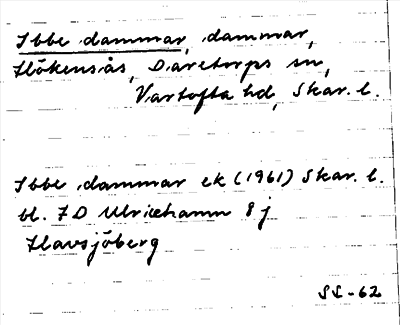 Ibbe dammar, dammar,
Hökensås, Daretorps sn,
Vartofta hd, Skar. l.
Ibbe dammar ek (1961) Skar. l.
bl. 7D Ulricehamn 8j
Havsjöberg
SS-62